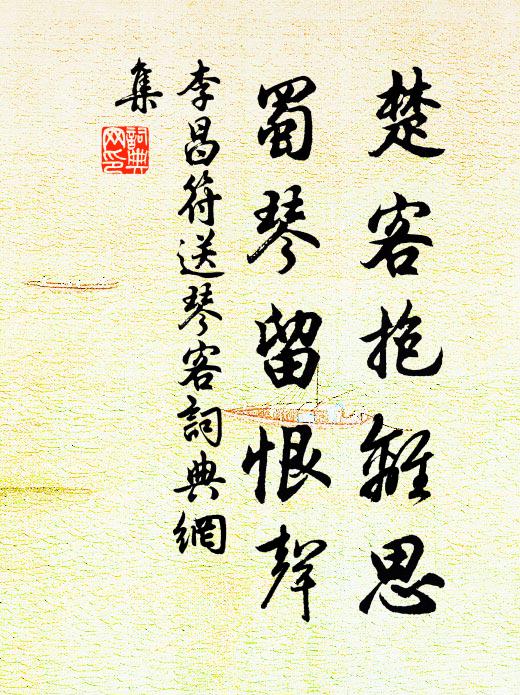 楚客抱離思
蜀琴留恨聲
李昌符送琴客詞典網
集
詞典網印